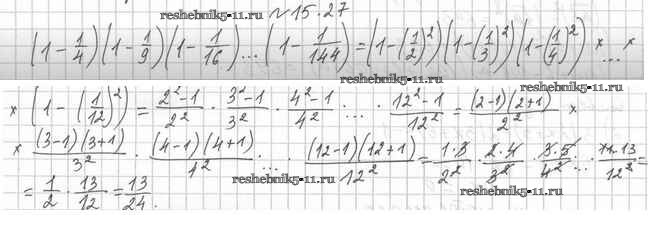 reshebnik5-11.ru №15.27
(1 - 1/4)(1 - 1/9)(1 - 1/16)...(1 - 1/144) = (1 - (1/2)²)(1 - (1/3)²)(1 - (1/4)²) × ... ×
reshebnik5-11.ru
reshebnik5-11.ru
× (1 - (1/12)²) = (2²-1)/2² · (3²-1)/3² · (4²-1)/4² · ... · (12²-1)/12² = (2-1)(2+1)/2² ×
× (3-1)(3+1)/3² · (4-1)(4+1)/4² · ... · (12-1)(12+1)/12² = 1·3/2² · 2·4/3² · 3·5/4² · ... · 11·13/12² =
reshebnik5-11.ru
reshebnik5-11.ru
= 1/2 · 13/12 = 13/24.